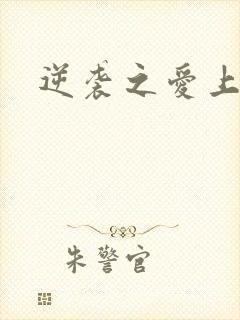 逆袭之愛上
朱警官